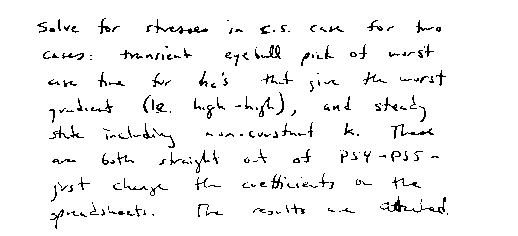 Solve for stresses in s.s. case for two
cases: transient eyeball pick of worst
case time for h's that give the worst
gradient (ie. high-high), and steady
state including non-constant k. These
are both straight out of PS4-PS5 -
just change the coefficients on the
spreadsheets. The results are attached.